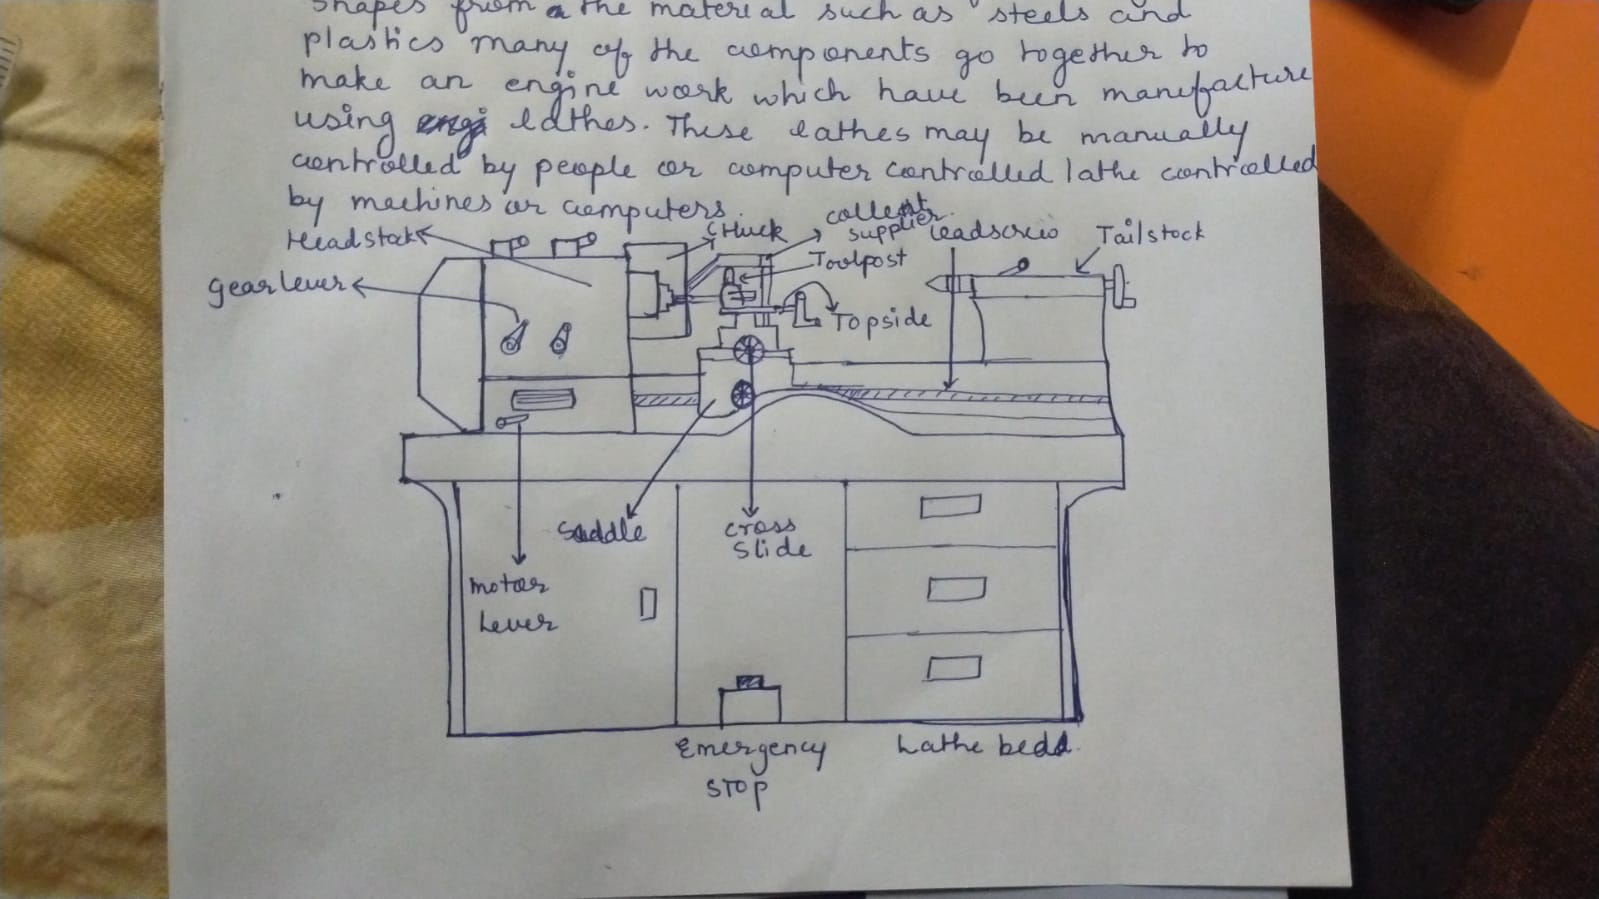 shapes from a the material such as steels and
plastics many of the components go together to
make an engine work which have been manufacture
using lathes. These lathes may be manually
controlled by people or computer controlled lathe controlled
by machines or computers.
Headstock
Chuck
supplier
leadscrew
Tailstock
gear lever
Toolpost
Topside
Saddle
cross
slide
motor
Lever
Emergency
STOP
Lathe bedd.